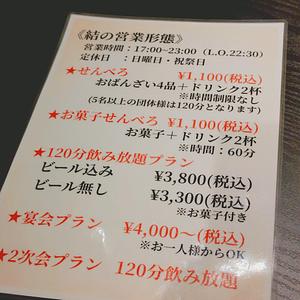 《結の営業形態》
営業時間：17:00~23:00（L.O.22:30）
定休日　：日曜日・祝祭日
★せんべろ　¥1,100(税込)
おばんざい4品＋ドリンク2杯
※時間制限なし
(5名以上の団体様は120分となります)
★お菓子せんべろ　¥1,100(税込)
お菓子＋ドリンク2杯
※時間：60分
★120分飲み放題プラン
ビール込み　¥3,800(税込)
ビール無し　¥3,300(税込)
※お菓子付き
★宴会プラン　¥4,000~(税込)
※お一人様からOK
★2次会プラン　120分飲み放題